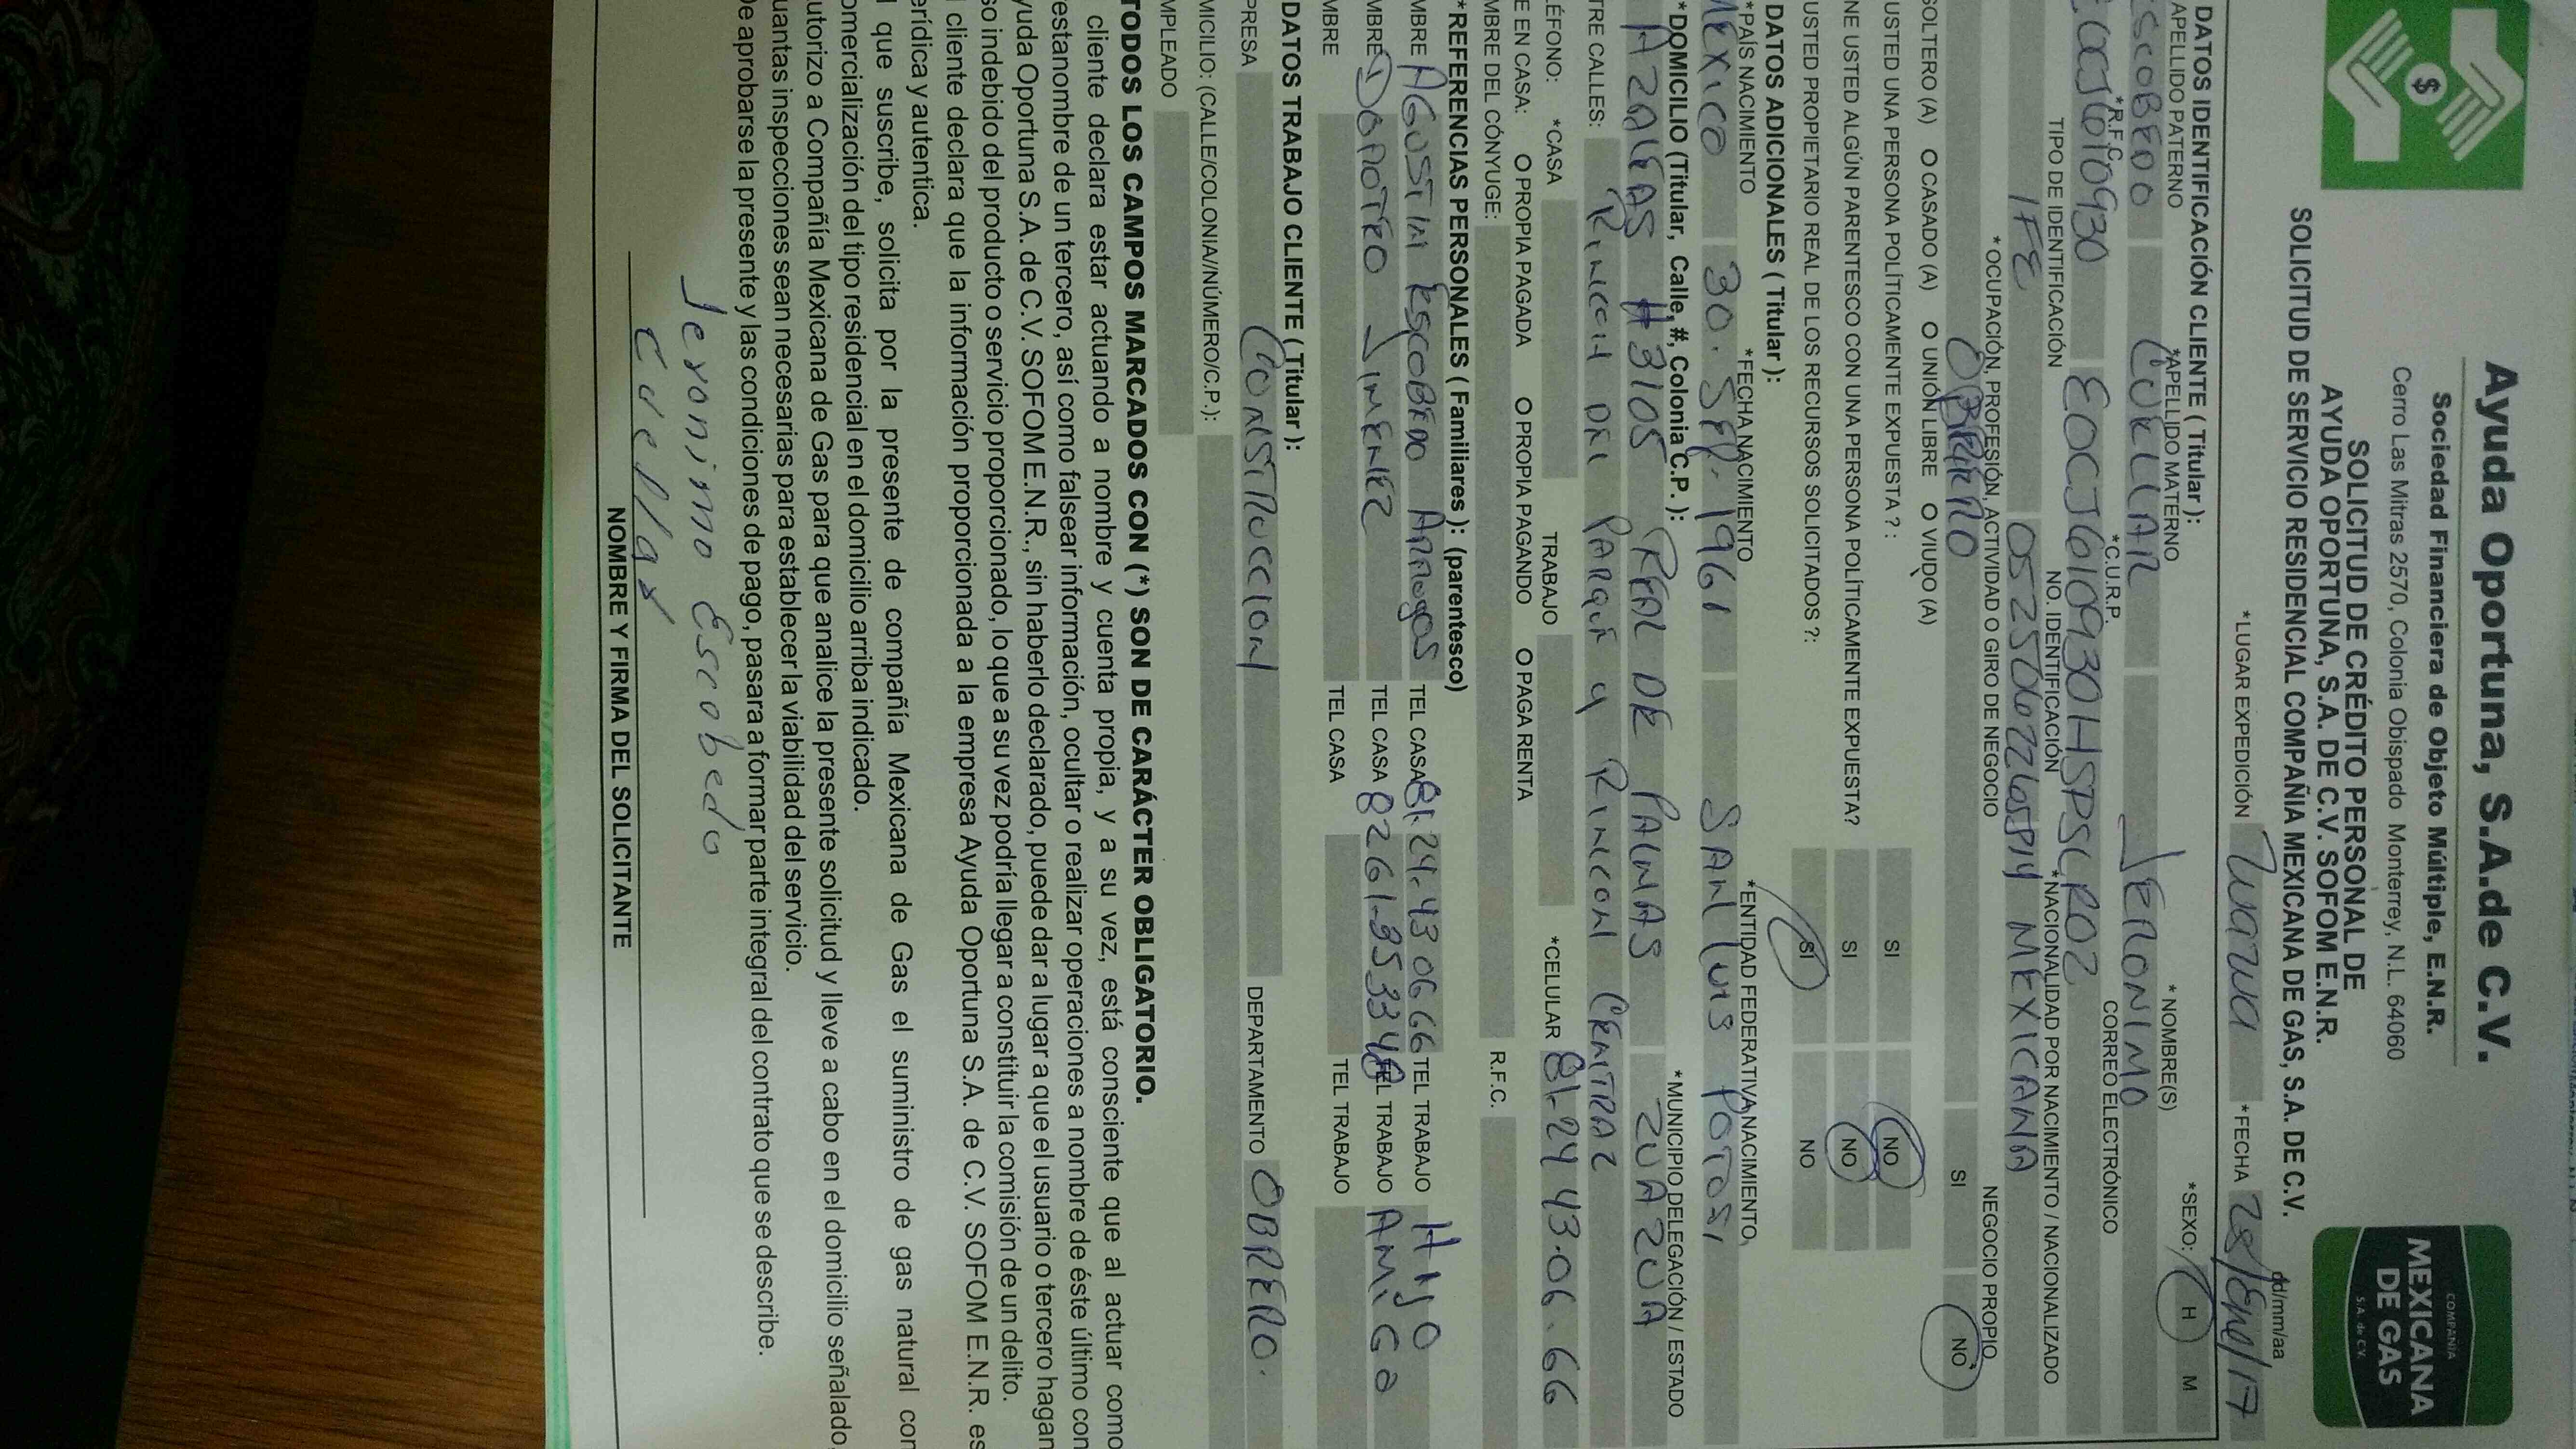 Ayuda Oportuna, S.A.de C.V.
Sociedad Financiera de Objeto Múltiple, E.N.R.
Cerro Las Mitras 2570, Colonia Obispado Monterrey, N.L. 64060
SOLICITUD DE CRÉDITO PERSONAL DE
AYUDA OPORTUNA, S.A. DE C.V. SOFOM E.N.R.
SOLICITUD DE SERVICIO RESIDENCIAL COMPAÑIA MEXICANA DE GAS, S.A. DE C.V.
$
COMPAÑIA
MEXICANA
DE GAS
S.A. de C.V.
dd/mm/aa
*LUGAR EXPEDICIÓN Zuazua *FECHA 28/Ene/17
DATOS IDENTIFICACIÓN CLIENTE ( Titular ):
APELLIDO PATERNO *APELLIDO MATERNO *NOMBRE(S) *SEXO: H M
SCOBEDO CUELLAR JERONIMO
*R.F.C. *C.U.R.P. CORREO ELECTRÓNICO
EOCJ610930 EOCJ610930HSPSLR02
TIPO DE IDENTIFICACIÓN NO. IDENTIFICACIÓN *NACIONALIDAD POR NACIMIENTO / NACIONALIZADO
IFE MEXICANA
*OCUPACIÓN, PROFESIÓN, ACTIVIDAD O GIRO DE NEGOCIO NEGOCIO PROPIO
OBRERO SI NO
SOLTERO (A) O CASADO (A) O UNIÓN LIBRE O VIUDO (A)
USTED UNA PERSONA POLÍTICAMENTE EXPUESTA ? : SI NO
NE USTED ALGÚN PARENTESCO CON UNA PERSONA POLÍTICAMENTE EXPUESTA? SI NO
USTED PROPIETARIO REAL DE LOS RECURSOS SOLICITADOS ?: SI NO
DATOS ADICIONALES ( Titular ):
*PAÍS NACIMIENTO *FECHA NACIMIENTO *ENTIDAD FEDERATIVA NACIMIENTO
MEXICO 30. SEP. 1961 SAN LUIS POTOSI
*DOMICILIO (Titular, Calle, #, Colonia C.P. ): *MUNICIPIO DELEGACIÓN / ESTADO
AZALEAS #3105 REAL DE PALMAS ZUAZUA
TRE CALLES: RINCON DEL PARQUE Y RINCON CENTRAL
LÉFONO: *CASA TRABAJO *CELULAR 81-24 43.06.66
E EN CASA: O PROPIA PAGADA O PROPIA PAGANDO O PAGA RENTA
MBRE DEL CÓNYUGE: R.F.C.
*REFERENCIAS PERSONALES ( Familiares ): (parentesco)
MBRE AGUSTIN ESCOBEDO TEL CASA 81.24.43 06 66 TEL TRABAJO HIJO
MBRE DOROTEO JIMENEZ TEL CASA TEL TRABAJO AMIGO
MBRE TEL CASA TEL TRABAJO
DATOS TRABAJO CLIENTE ( Titular ):
PRESA CONSTRUCCION DEPARTAMENTO OBRERO.
MICILIO: (CALLE/COLONIA//NÚMERO/C.P.):
MPLEADO
TODOS LOS CAMPOS MARCADOS CON (*) SON DE CARÁCTER OBLIGATORIO.
cliente declara estar actuando a nombre y cuenta propia, y a su vez, está consciente que al actuar como
estanombre de un tercero, así como falsear información, ocultar o realizar operaciones a nombre de éste último con
yuda Oportuna S.A. de C.V. SOFOM E.N.R., sin haberlo declarado, puede dar a lugar a que el usuario o tercero hagan
so indebido del producto o servicio proporcionado, lo que a su vez podría llegar a constituir la comisión de un delito.
l cliente declara que la información proporcionada a la empresa Ayuda Oportuna S.A. de C.V. SOFOM E.N.R. es
erídica y autentica.
l que suscribe, solicita por la presente de compañía Mexicana de Gas el suministro de gas natural con
omercialización del tipo residencial en el domicilio arriba indicado.
utorizo a Compañía Mexicana de Gas para que analice la presente solicitud y lleve a cabo en el domicilio señalado,
uantas inspecciones sean necesarias para establecer la viabilidad del servicio.
De aprobarse la presente y las condiciones de pago, pasara a formar parte integral del contrato que se describe.
Jeronimo Escobedo
Cuellar
NOMBRE Y FIRMA DEL SOLICITANTE